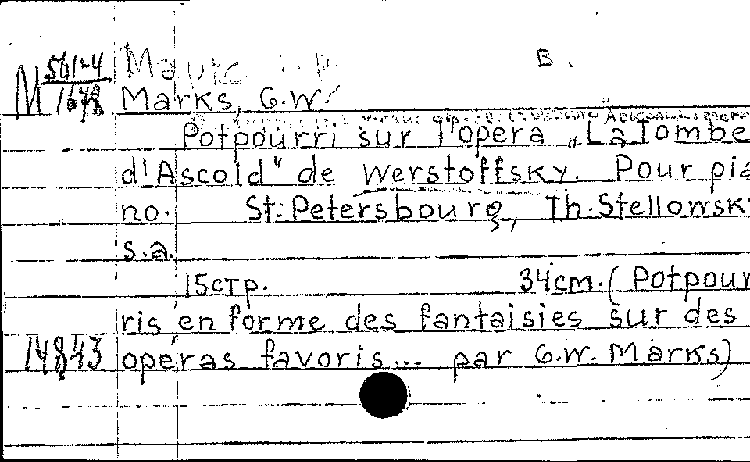 М 561-4 В.
1678 Marks, G.W.
Potpourri sur l'opera „La Tombe
d'Ascold" de Werstoffsky. Pour pia
no. St: Petersbourg, Th. Stellowsk
s.a.
15стр. 34cm. (Potpour
ris en forme des fantaisies sur des
14843 opéras favoris... par G.W. Marks)